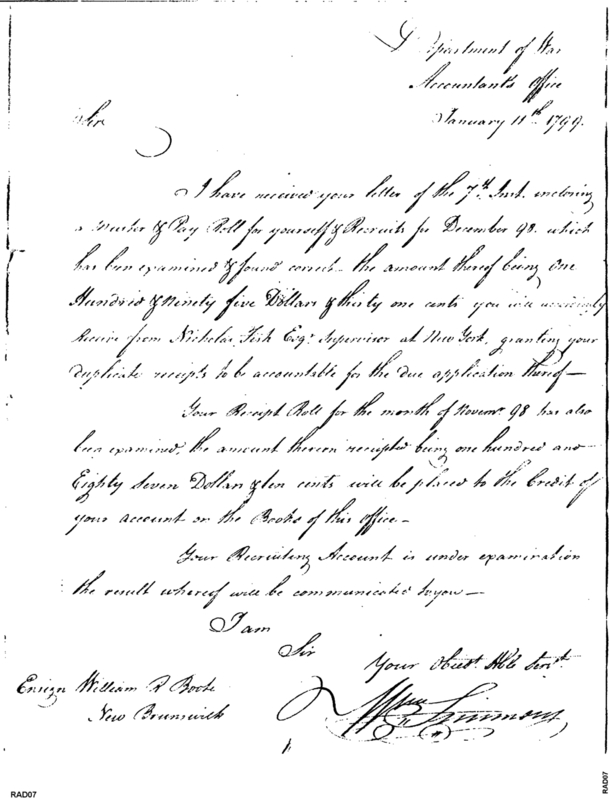 Department of War
Accountants Office
January 11th. 1799.
Sir
I have received your letter of the 7th. Inst. inclosing
a Muster & Pay Roll for yourself & Recruits for December 98. which
has been examined & found correct — the amount thereof being One
Hundred & Ninety five Dollars & thirty one cents you will accordingly
Receive from Nicholas Fish Esqr. Supervisor at New York, granting your
duplicate receipts to be accountable for the due application thereof —
Your Receipt Roll for the month of Novemr. 98 has also
been examined, the amount thereon receipted being one hundred and
Eighty Seven Dollars & ten cents will be placed to the Credit of
your account on the Books of this Office —
Your Recruiting Account is under examination
the result whereof will be communicated to you —
I am
Sir
Your Obedt. Hble Servt.
Wm Simmons
Ensign William R Boote
New Brunswick
RAD07
RAD07